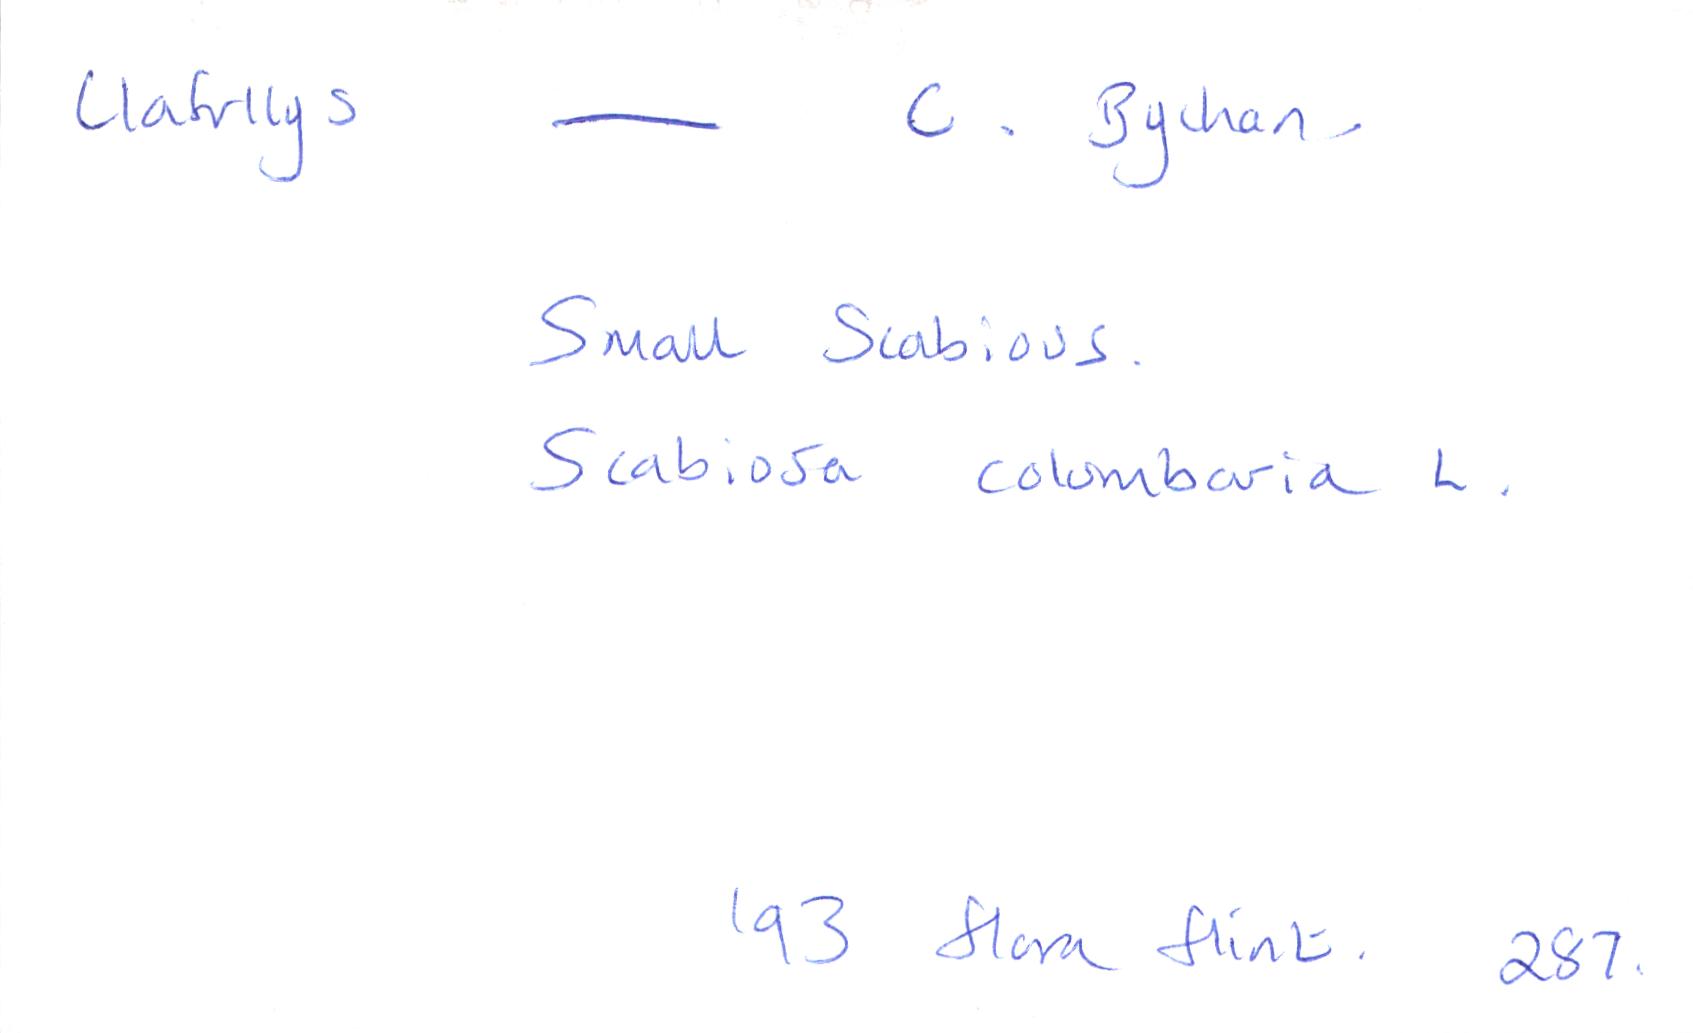 Clafrllys — C. Bychan
Small Scabious.
Scabiosa colombaria L.
'93 Flora Flint. 287.